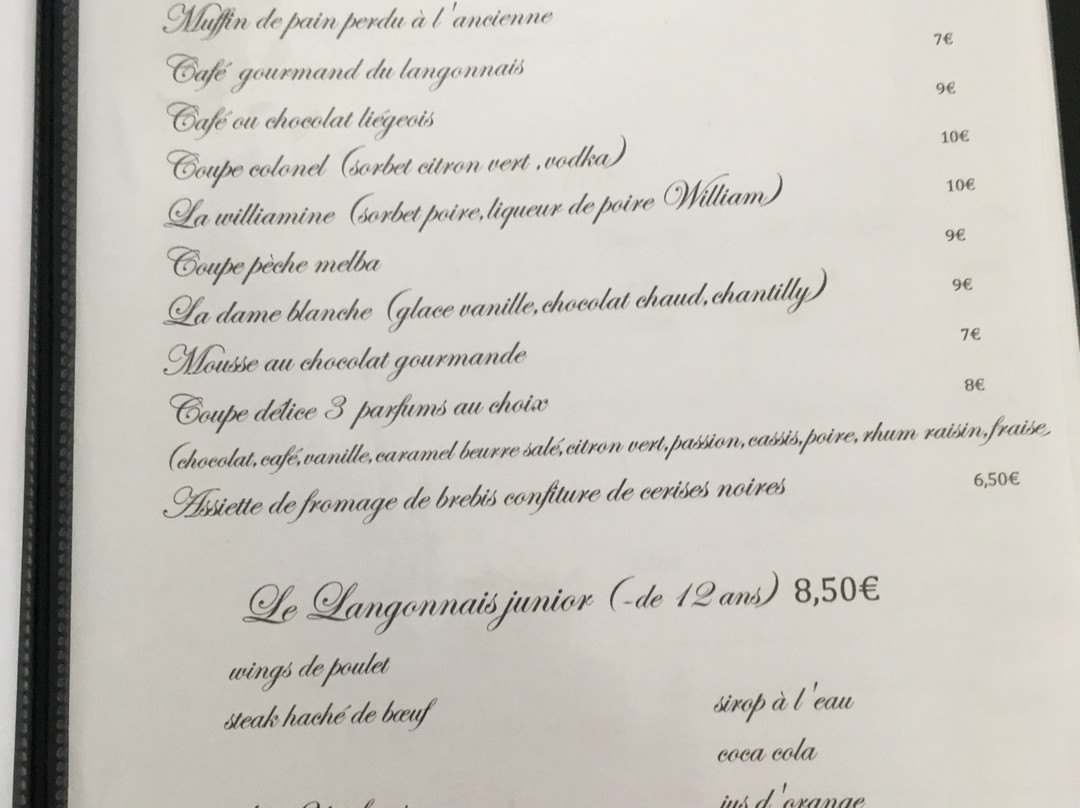 Muffin de pain perdu à l'ancienne
Café gourmand du langonnais 7€
Café ou chocolat liégeois 9€
Coupe colonel (sorbet citron vert ,vodka) 10€
La williamine (sorbet poire,liqueur de poire William) 10€
Coupe pèche melba 9€
La dame blanche (glace vanille,chocolat chaud,chantilly) 9€
Mousse au chocolat gourmande 7€
Coupe délice 3 parfums au choix 8€
(chocolat,café,vanille,caramel beurre salé,citron vert,passion,cassis,poire, rhum raisin,fraise,
Assiette de fromage de brebis confiture de cerises noires 6,50€
Le Langonnais junior (-de 12 ans) 8,50€
wings de poulet
steak haché de bœuf
sirop à l'eau
coca cola
jus d'orange